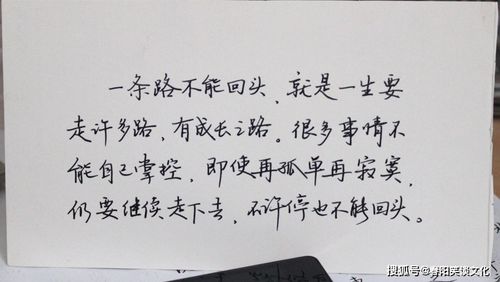 一条路不能回头，就是一生要
走许多路，有成长之路。很多事情不
能自己掌控，即使再孤单再寂寞，
仍要继续走下去，不许停也不能回头。
搜狐号@春阳笑谈文化